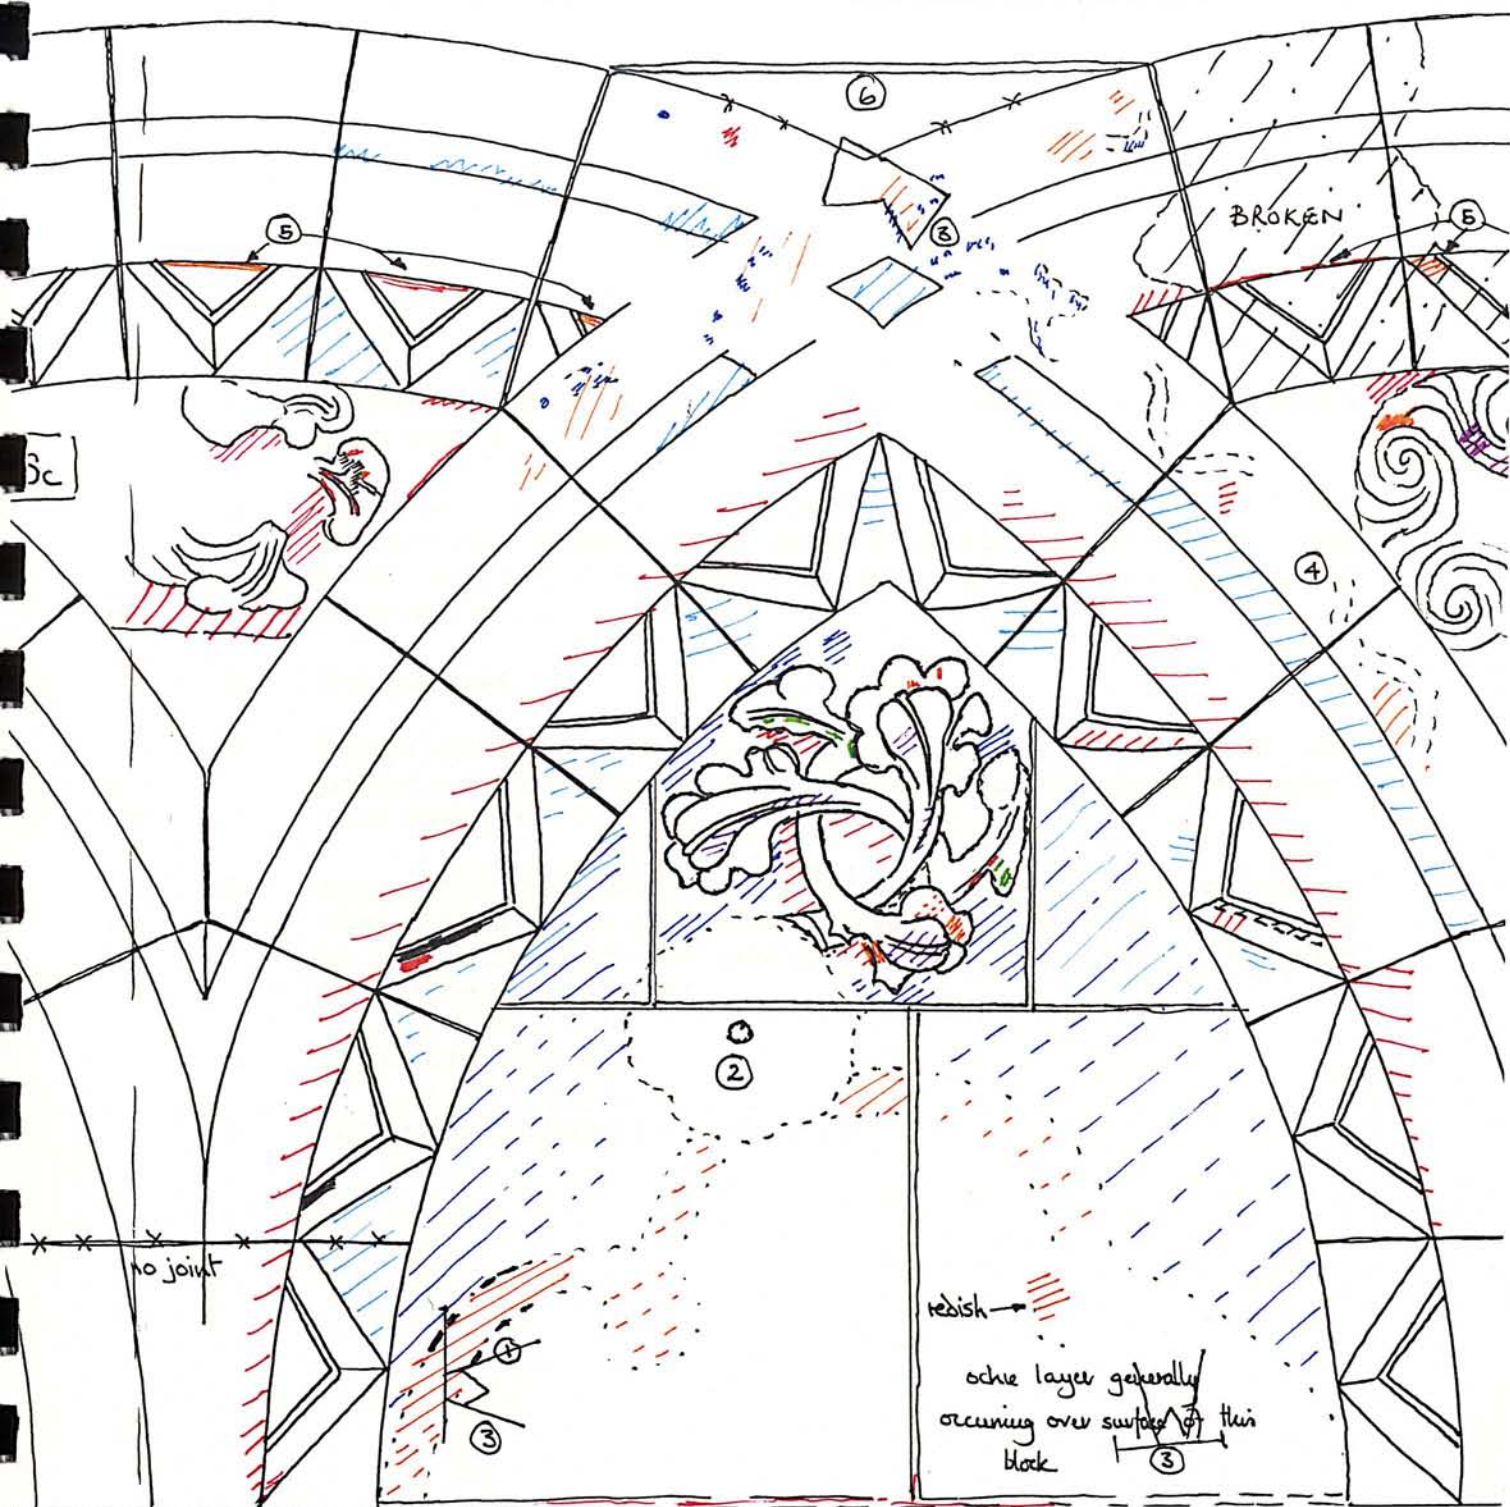 6
5
BROKEN
5
3
3c
4
2
no joint
redish
1
ochre layer generally
occuring over surface of this
block
3
3